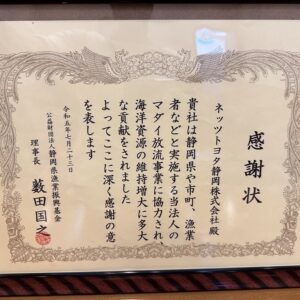 感謝状
ネッツトヨタ静岡株式会社 殿
貴社は静岡県や市町、漁業
者などと実施する当法人の
マダイ放流事業に協力され、
海洋資源の維持増大に多大
な貢献をされました
よってここに深く感謝の意
を表します
令和五年七月二十三日
公益財団法人静岡県漁業振興基金
理事長 藪田国之